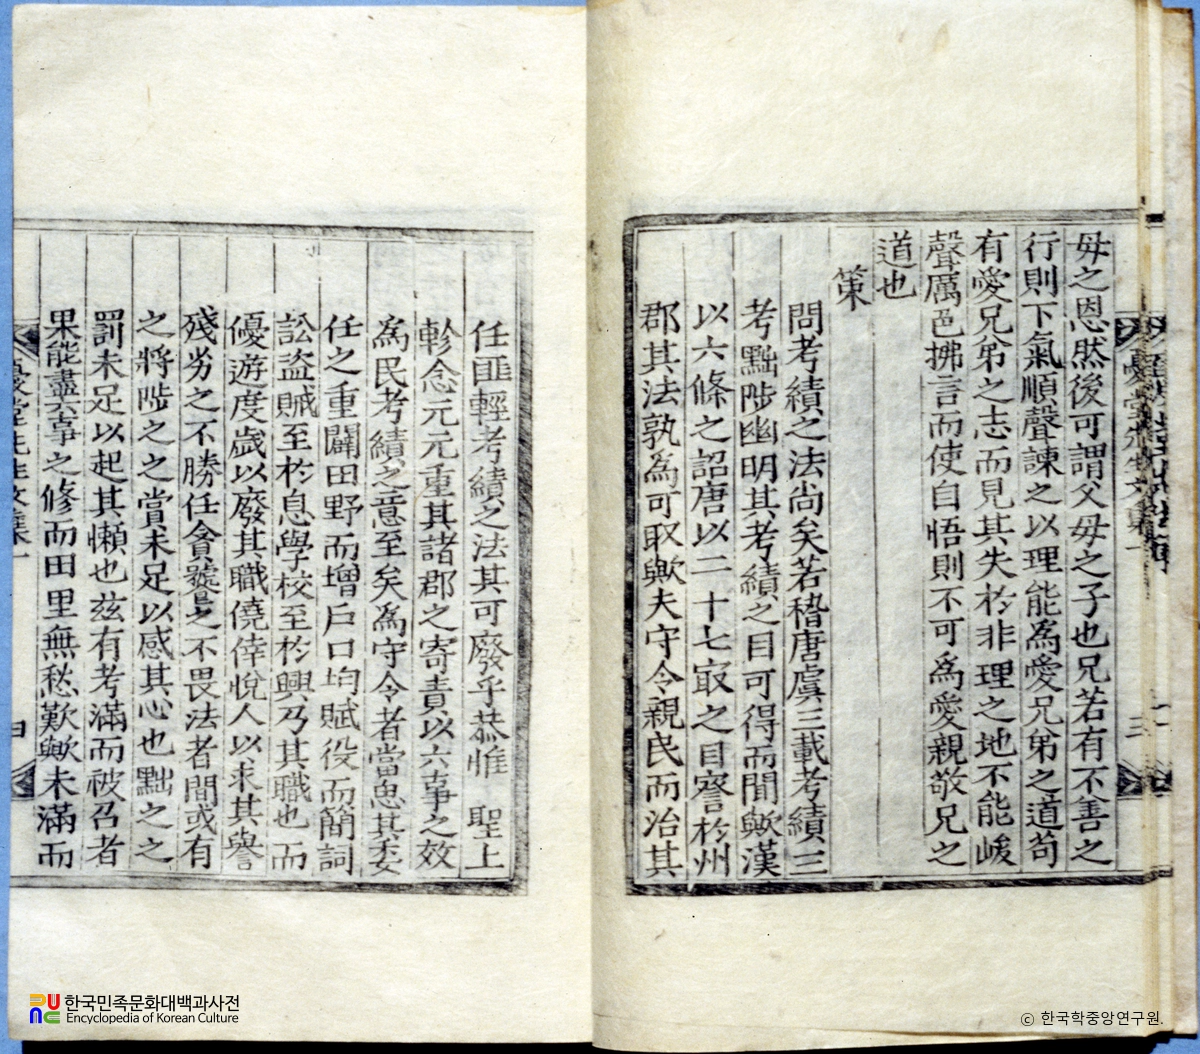 母之恩然後可謂父母之子也兄若有不善之
行則下氣順聲諫之以理能為愛兄弟之道苟
有愛兄弟之志而見其失於非理之地不能峻
聲厲色拂言而使自悟則不可為愛親敬兄之
道也
策
問考績之法尚矣若稽唐虞三載考績三
考黜陟幽明其考績之目可得而聞歟漢
以六條之詔唐以二十七㝡之目察於州
郡其法孰為可取歟夫守令親民而治其
任匪輕考績之法其可廢乎恭惟 聖上
軫念元元重其諸郡之寄責以六事之效
為民考績之意至矣為守令者當思其委
任之重闢田野而增戶口均賦役而簡詞
訟盜賊至於息學校至於興乃其職也而
優遊度歲以廢其職僥倖悅人以求其譽
殘劣之不勝任貪饕之不畏法者間或有
之將陟之之賞未足以感其心也黜之之
罰未足以起其懶也玆有考滿而被召者
果能盡六事之修而田里無愁歎歟未滿而
憂堂先生文集一
三
四
한국민족문화대백과사전
Encyclopedia of Korean Culture
ⓒ 한국학중앙연구원.